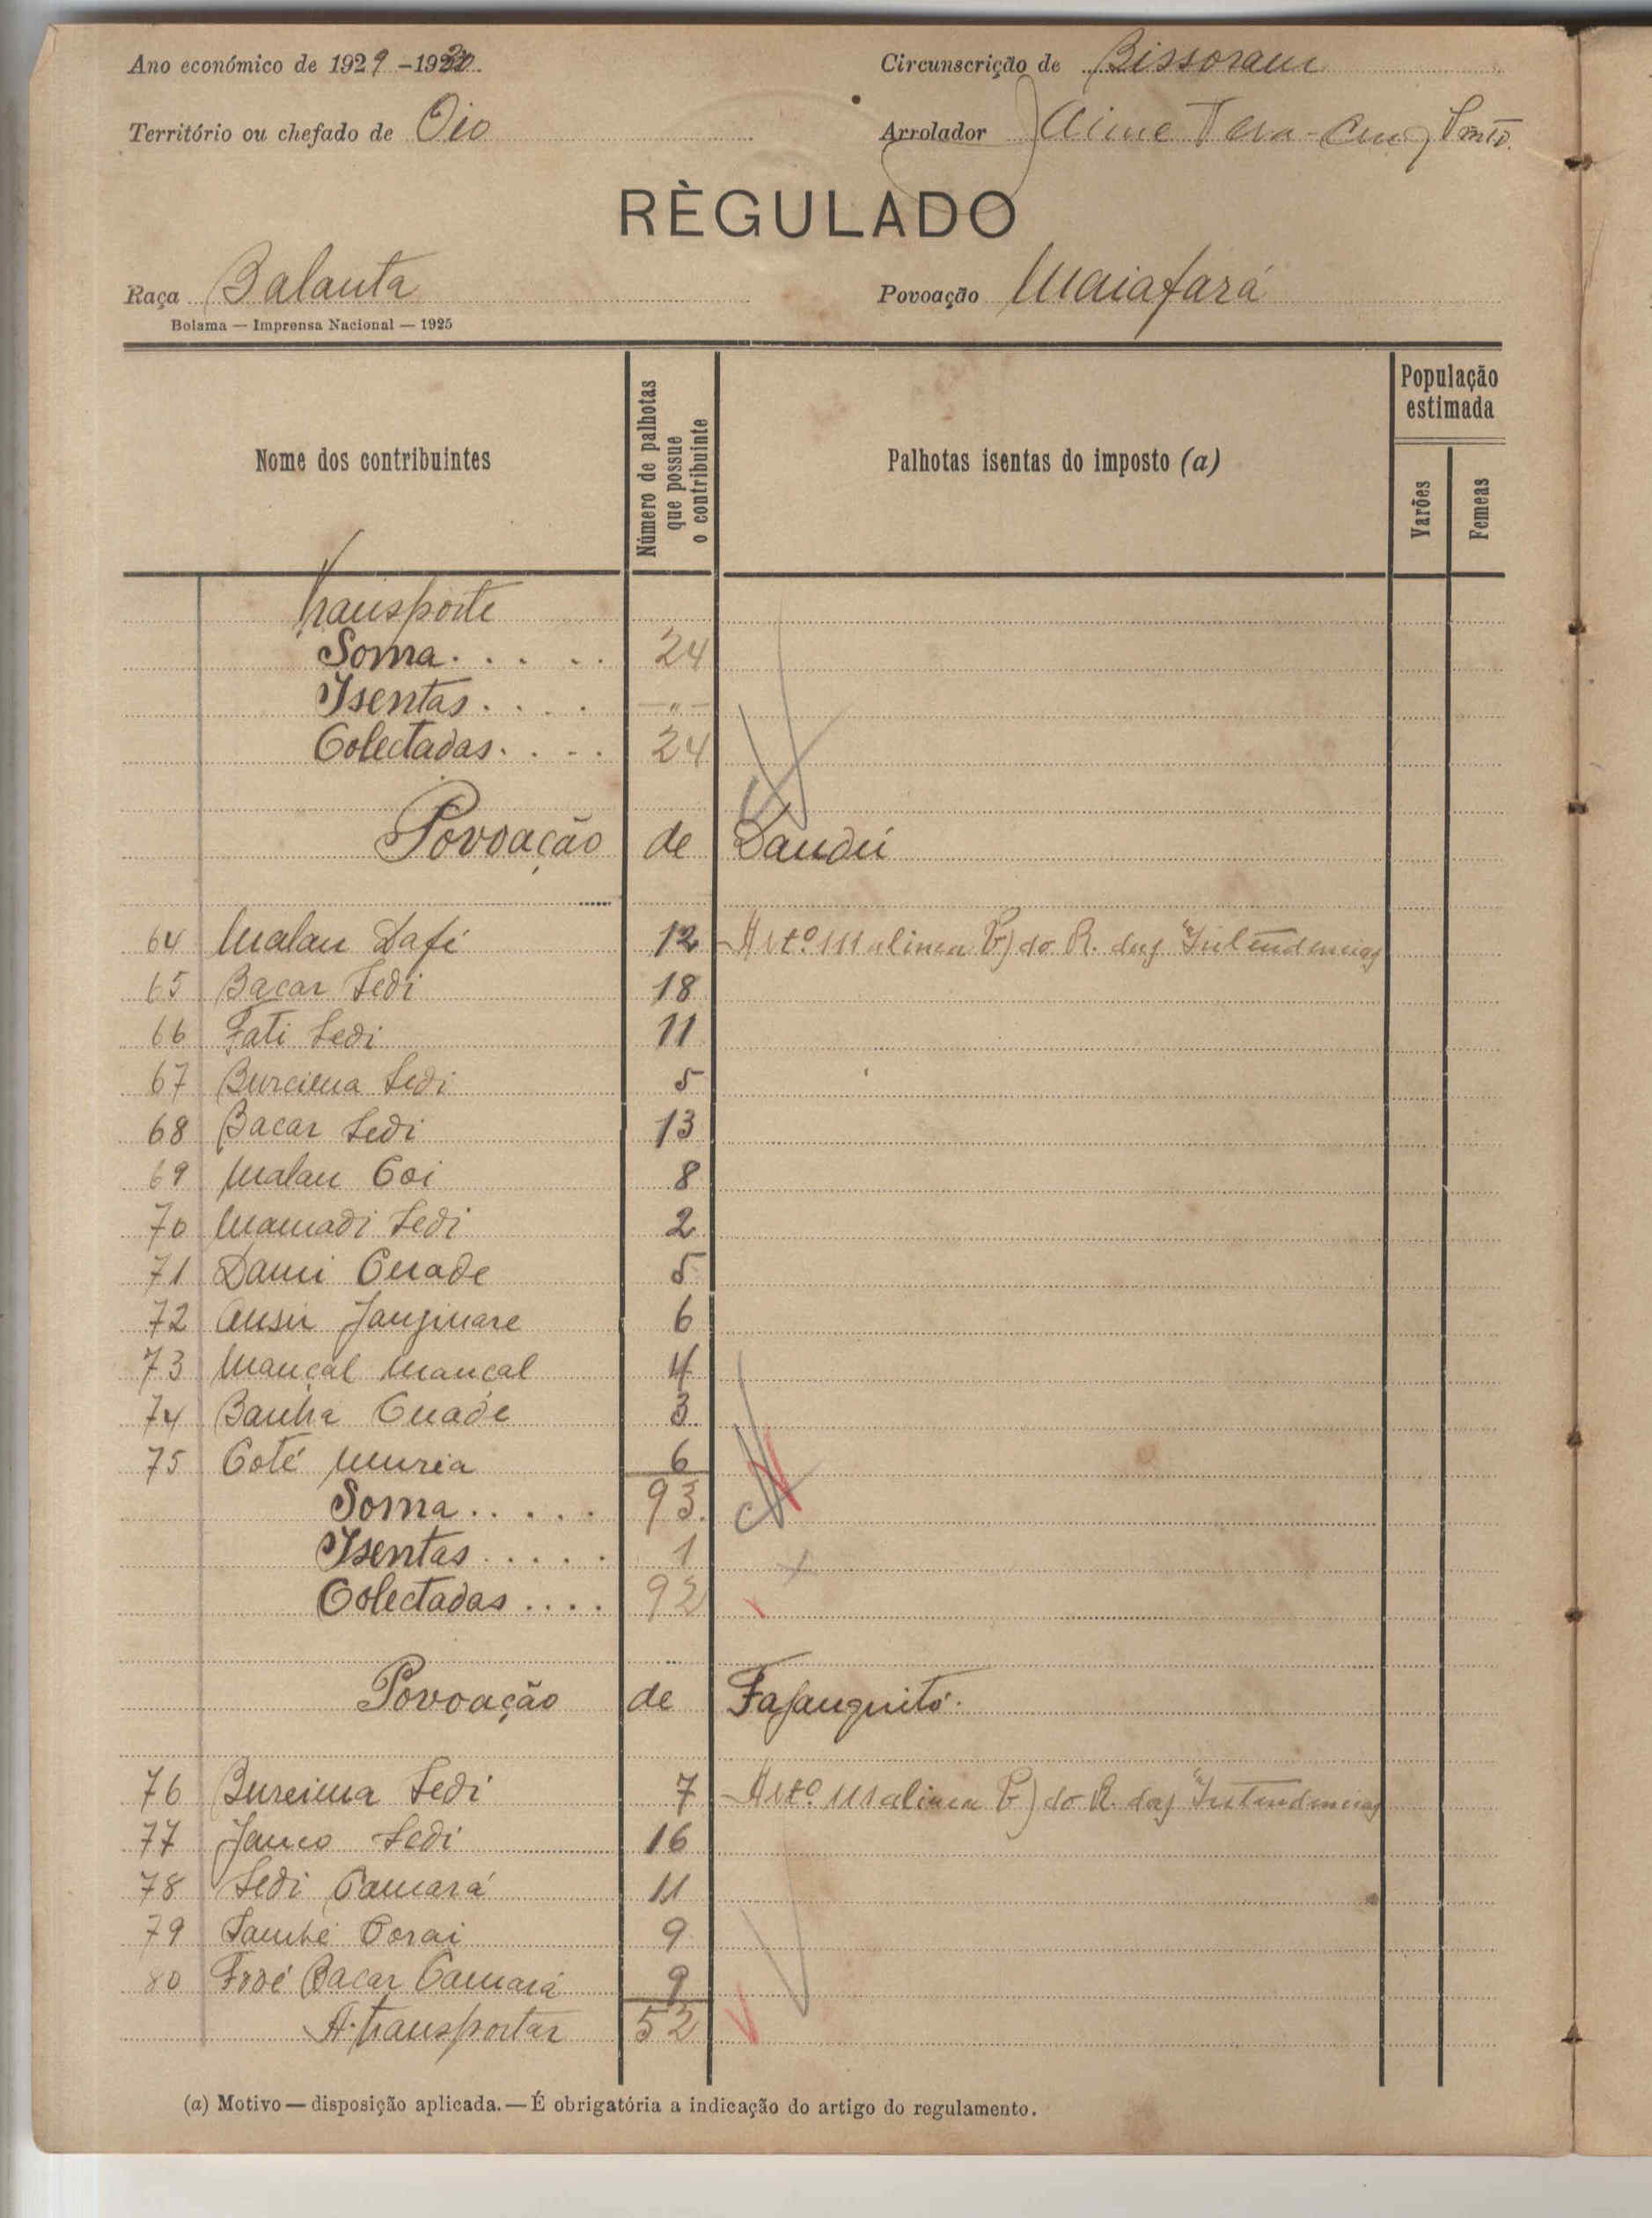 Ano económico de 1929-1930
Circunscrição de Bissoram
Território ou chefado de Oio
Arrolador Jaime
RÈGULADO
Raça Balanta
Povoação Maiafará
Bolama — Imprensa Nacional — 1925
Nome dos contribuintes
Número de palhotas que possue o contribuinte
Palhotas isentas do imposto (a)
População estimada
Varões
Femeas
Transporte
Soma..... 24
Isentas.... —"—
Colectadas.... 24
Povoação de Dandú
64 Malan Dafé 12 Artº 111 alinea b) do R. das Intendencias
65 Bacar Sedi 18
66 Fati Sedi 11
67 Burcima Sedi 5
68 Bacar Sedi 13
69 Malan Coi 8
70 Mamadi Sedi 2
71 Dami Cuade 5
72 Ansu Janjuare 6
73 Mançal Mancal 4
74 Cuade 3
75 Coté 6
Soma..... 93
Isentas..... 1
Colectadas.... 92
Povoação de Fajanquitó.
76 Bureima Sedi 7 Artº 111 alinea b) do R. das Intendencias
77 Sedi 16
78 Sedi Camará 11
79 9
80 Bacar Camará 9
A transportar 52
(a) Motivo — disposição aplicada. — É obrigatória a indicação do artigo do regulamento.